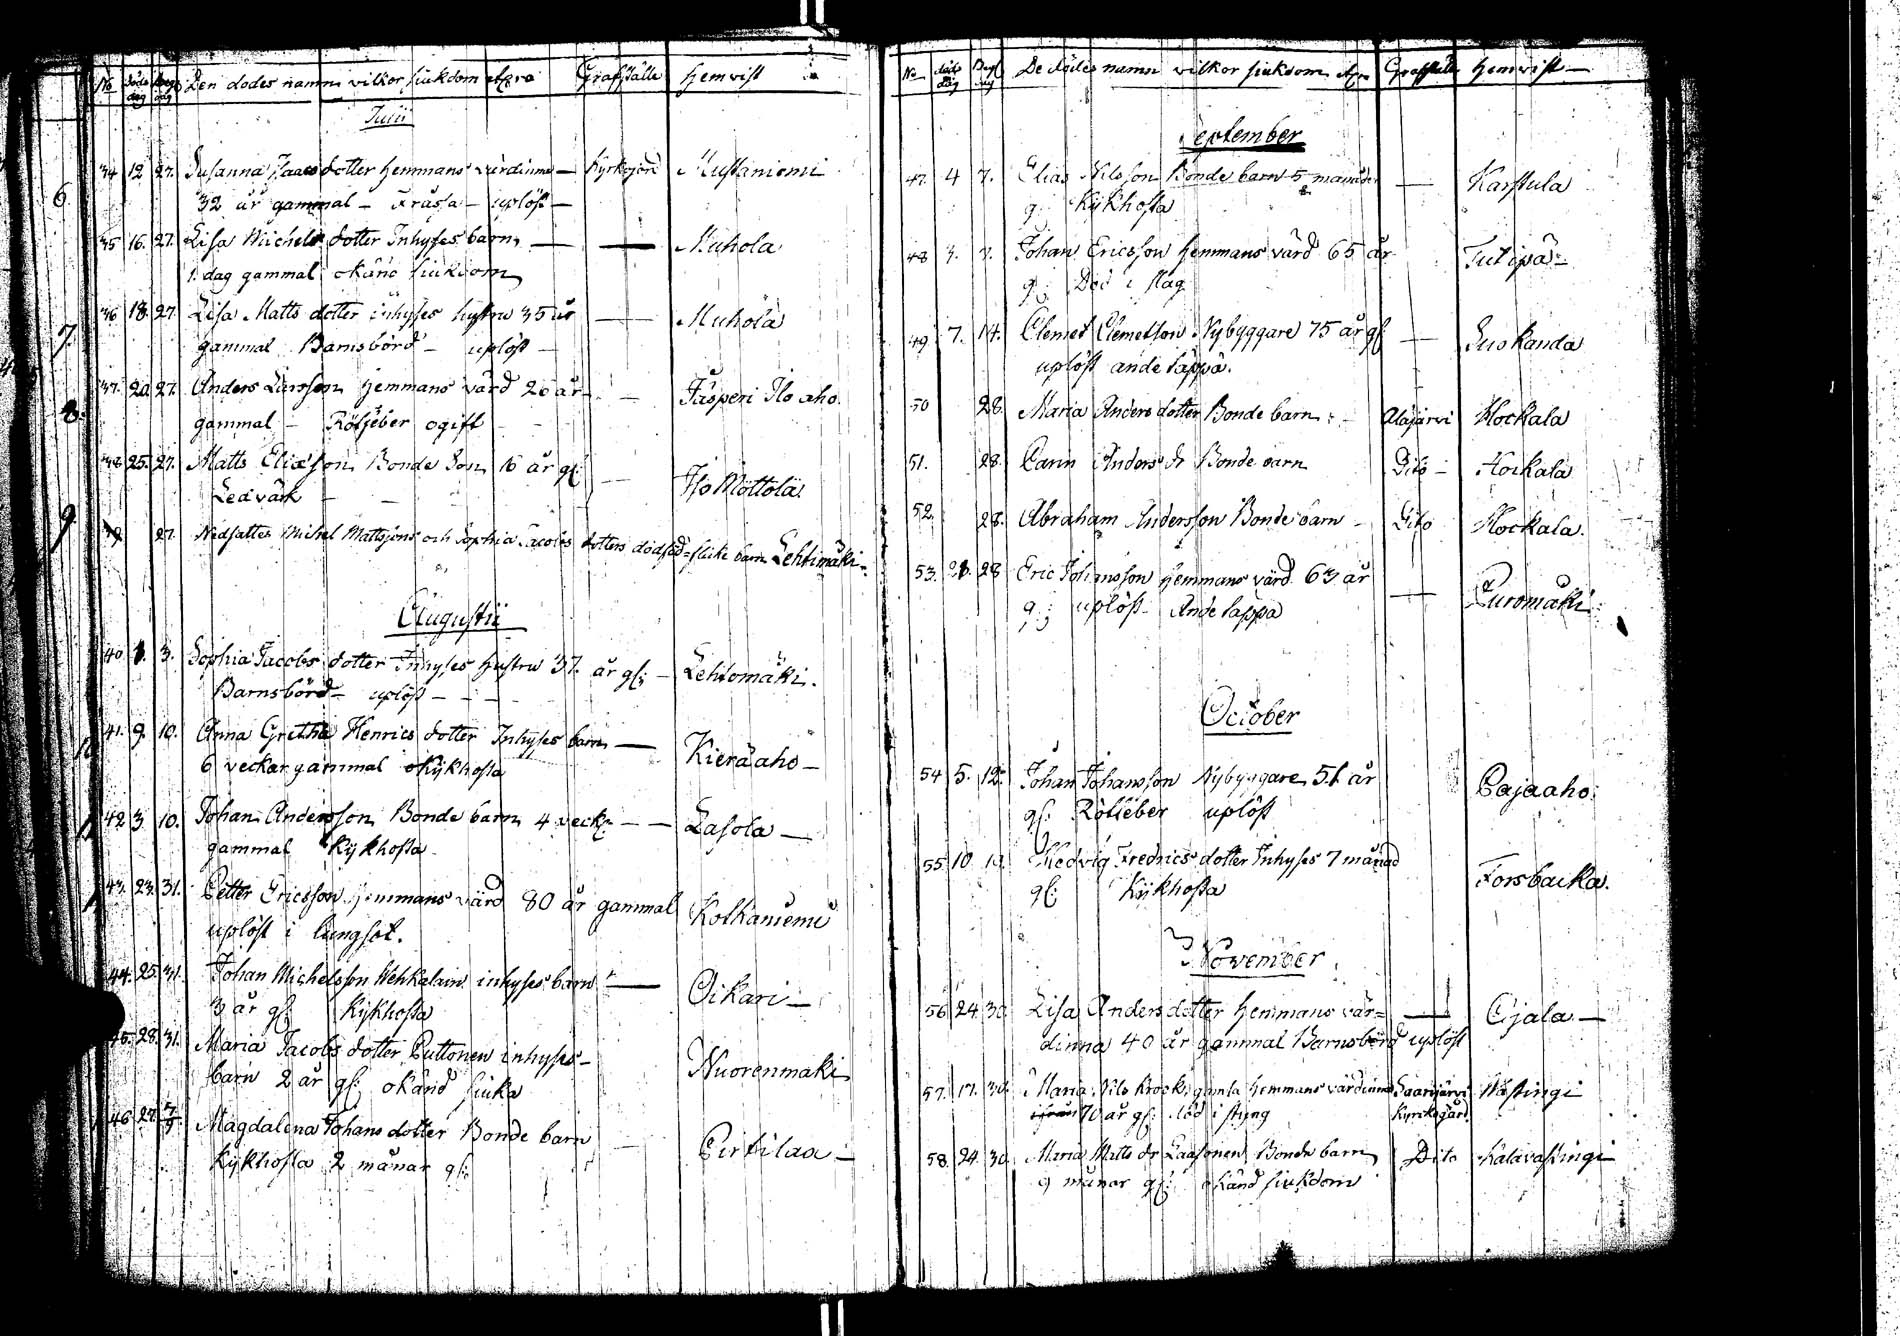 No döds dag begr dag Den dödes namn vilkor siukdom &c. Grafställe Hemvist
Julii
34 12 27. Susanna Isaacs dotter Hemmans värdinna — Kyrkojord Mustaniemi
32 år gammal — Frussa — uplöst —
35 16. 27. Lisa Michels dotter Inhyses barn — — Muhola
1. dag gammal okänd siukdom
36 18. 27. Lisa Matts dotter inhyses hustru 35 år — Muhola
gammal Barnsbörd — uplöst —
37. 20. 27. Anders Larsson Hemmans värd 26 år — Jäsperi Ilo aho
gammal — Rötfeber ogift —
38 25. 27. Matts Eliæson Bonde Son 16 år gl: — Iso Möttölä
Ledvärk —
27. Nedsattes Michel Mattssons och Sophia Jacobs dotters dödfödt flicke barn Lehtimäki
Augustii
40 1. 3. Sophia Jacobs dotter Inhyses Hustru 37. år gl: — Lehtomäki.
Barnsbörd — uplöst —
41. 9. 10. Anna Gretha Henrics dotter Inhyses barn — Kieräaho —
6 veckar gammal Kijkhosta
42 3 10. Johan Andersson Bonde barn 4 veck: — — Lasola —
gammal Kijkhosta
43. 23. 31. Petter Ericsson Hemmans värd 80 år gammal Kolkaniemi
uplöst i lungsot.
44. 25. 31. Johan Michelsson Wehkalain inhyses barn — Oikari —
3 år gl: Kijkhosta
45. 28. 31. Maria Jacobs dotter Puttonen inhyses — Wuorenmaki
barn 2 år gl: okänd siuka
46 27. 7/9 Magdalena Johans dotter Bonde barn — Pirtilax —
Kijkhosta 2 månar gl:
No döds dag Begr dag De dödes namn vilkor siukdom &c. Grafställe Hemvist —
September
47. 4 7. Elias Nilsson Bonde barn 5 månader — Karstula
g. Kijkhosta
48 3. 7. Johan Ericsson Hemmans värd 65 år
g: Död i slag
49 7. 14. Clemet Clemetson Nybyggare 75 år gl — Suokanda
uplöst ande täppa.
50 28. Maria Anders dotter Bonde barn: — Alajärvi Hockala
51. 28. Carin Anders dr Bonde barn Dito — Hockala
52. 28. Abraham Andersson Bonde barn — Dito Hockala.
53. 21. 28 Eric Johansson Hemmans värd 63 år — Puromäki
g: uplöst Ande täppa
October
54 5. 12. Johan Johansson Nybyggare 51 år Pajaaho.
gl: Rötfeber uplöst
55 10 Hedvig Fredrics dotter Inhyses 7 månad Forsbacka.
gl: Kijkhosta
November
56 24 30 Lisa Anders dotter Hemmans vär= — Ojala —
dinna 40 år gammal Barnsbörd uplöst
57. 17. 30. Maria Nils Krooks gamla Hemmans värdinna Saarijärvi Mästingi
70 år gl: död i styng Kyrckogård
58. 24. 30 Maria Matts dr Laasonen Bonde barn Dito Kalavastingi
9 månar gl: okänd siukdom